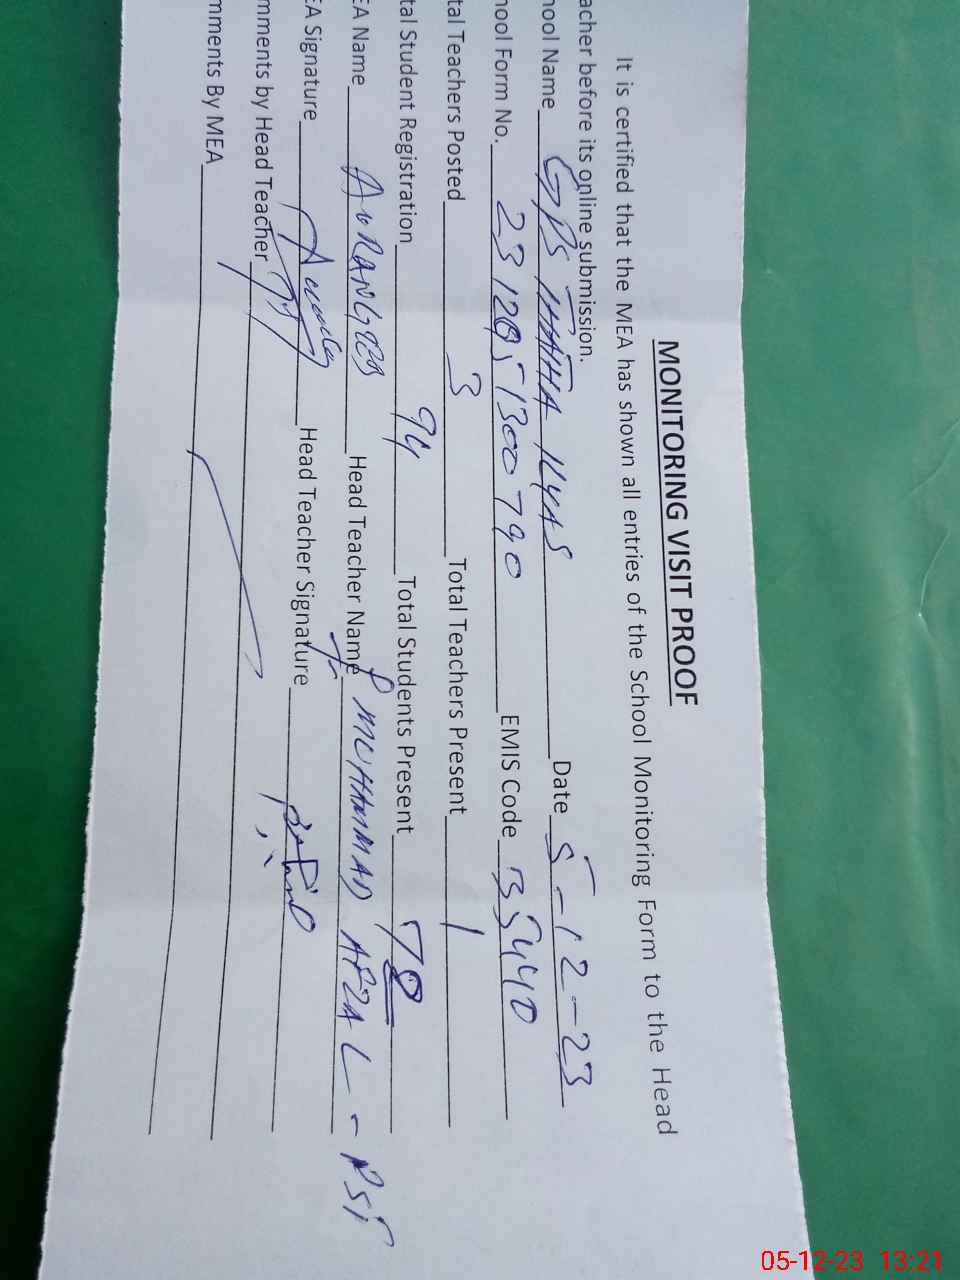 MONITORING VISIT PROOF
It is certified that the MEA has shown all entries of the School Monitoring Form to the Head
acher before its online submission.
ool Name GPS ILYAS Date 5-12-23
ool Form No. EMIS Code 35440
tal Teachers Posted 3 Total Teachers Present 1
tal Student Registration 94 Total Students Present 78
EA Name AURANGZEB Head Teacher Name MUHAMMAD AFZAL - PST
EA Signature Head Teacher Signature
mments by Head Teacher
mments By MEA
05-12-23 13:21